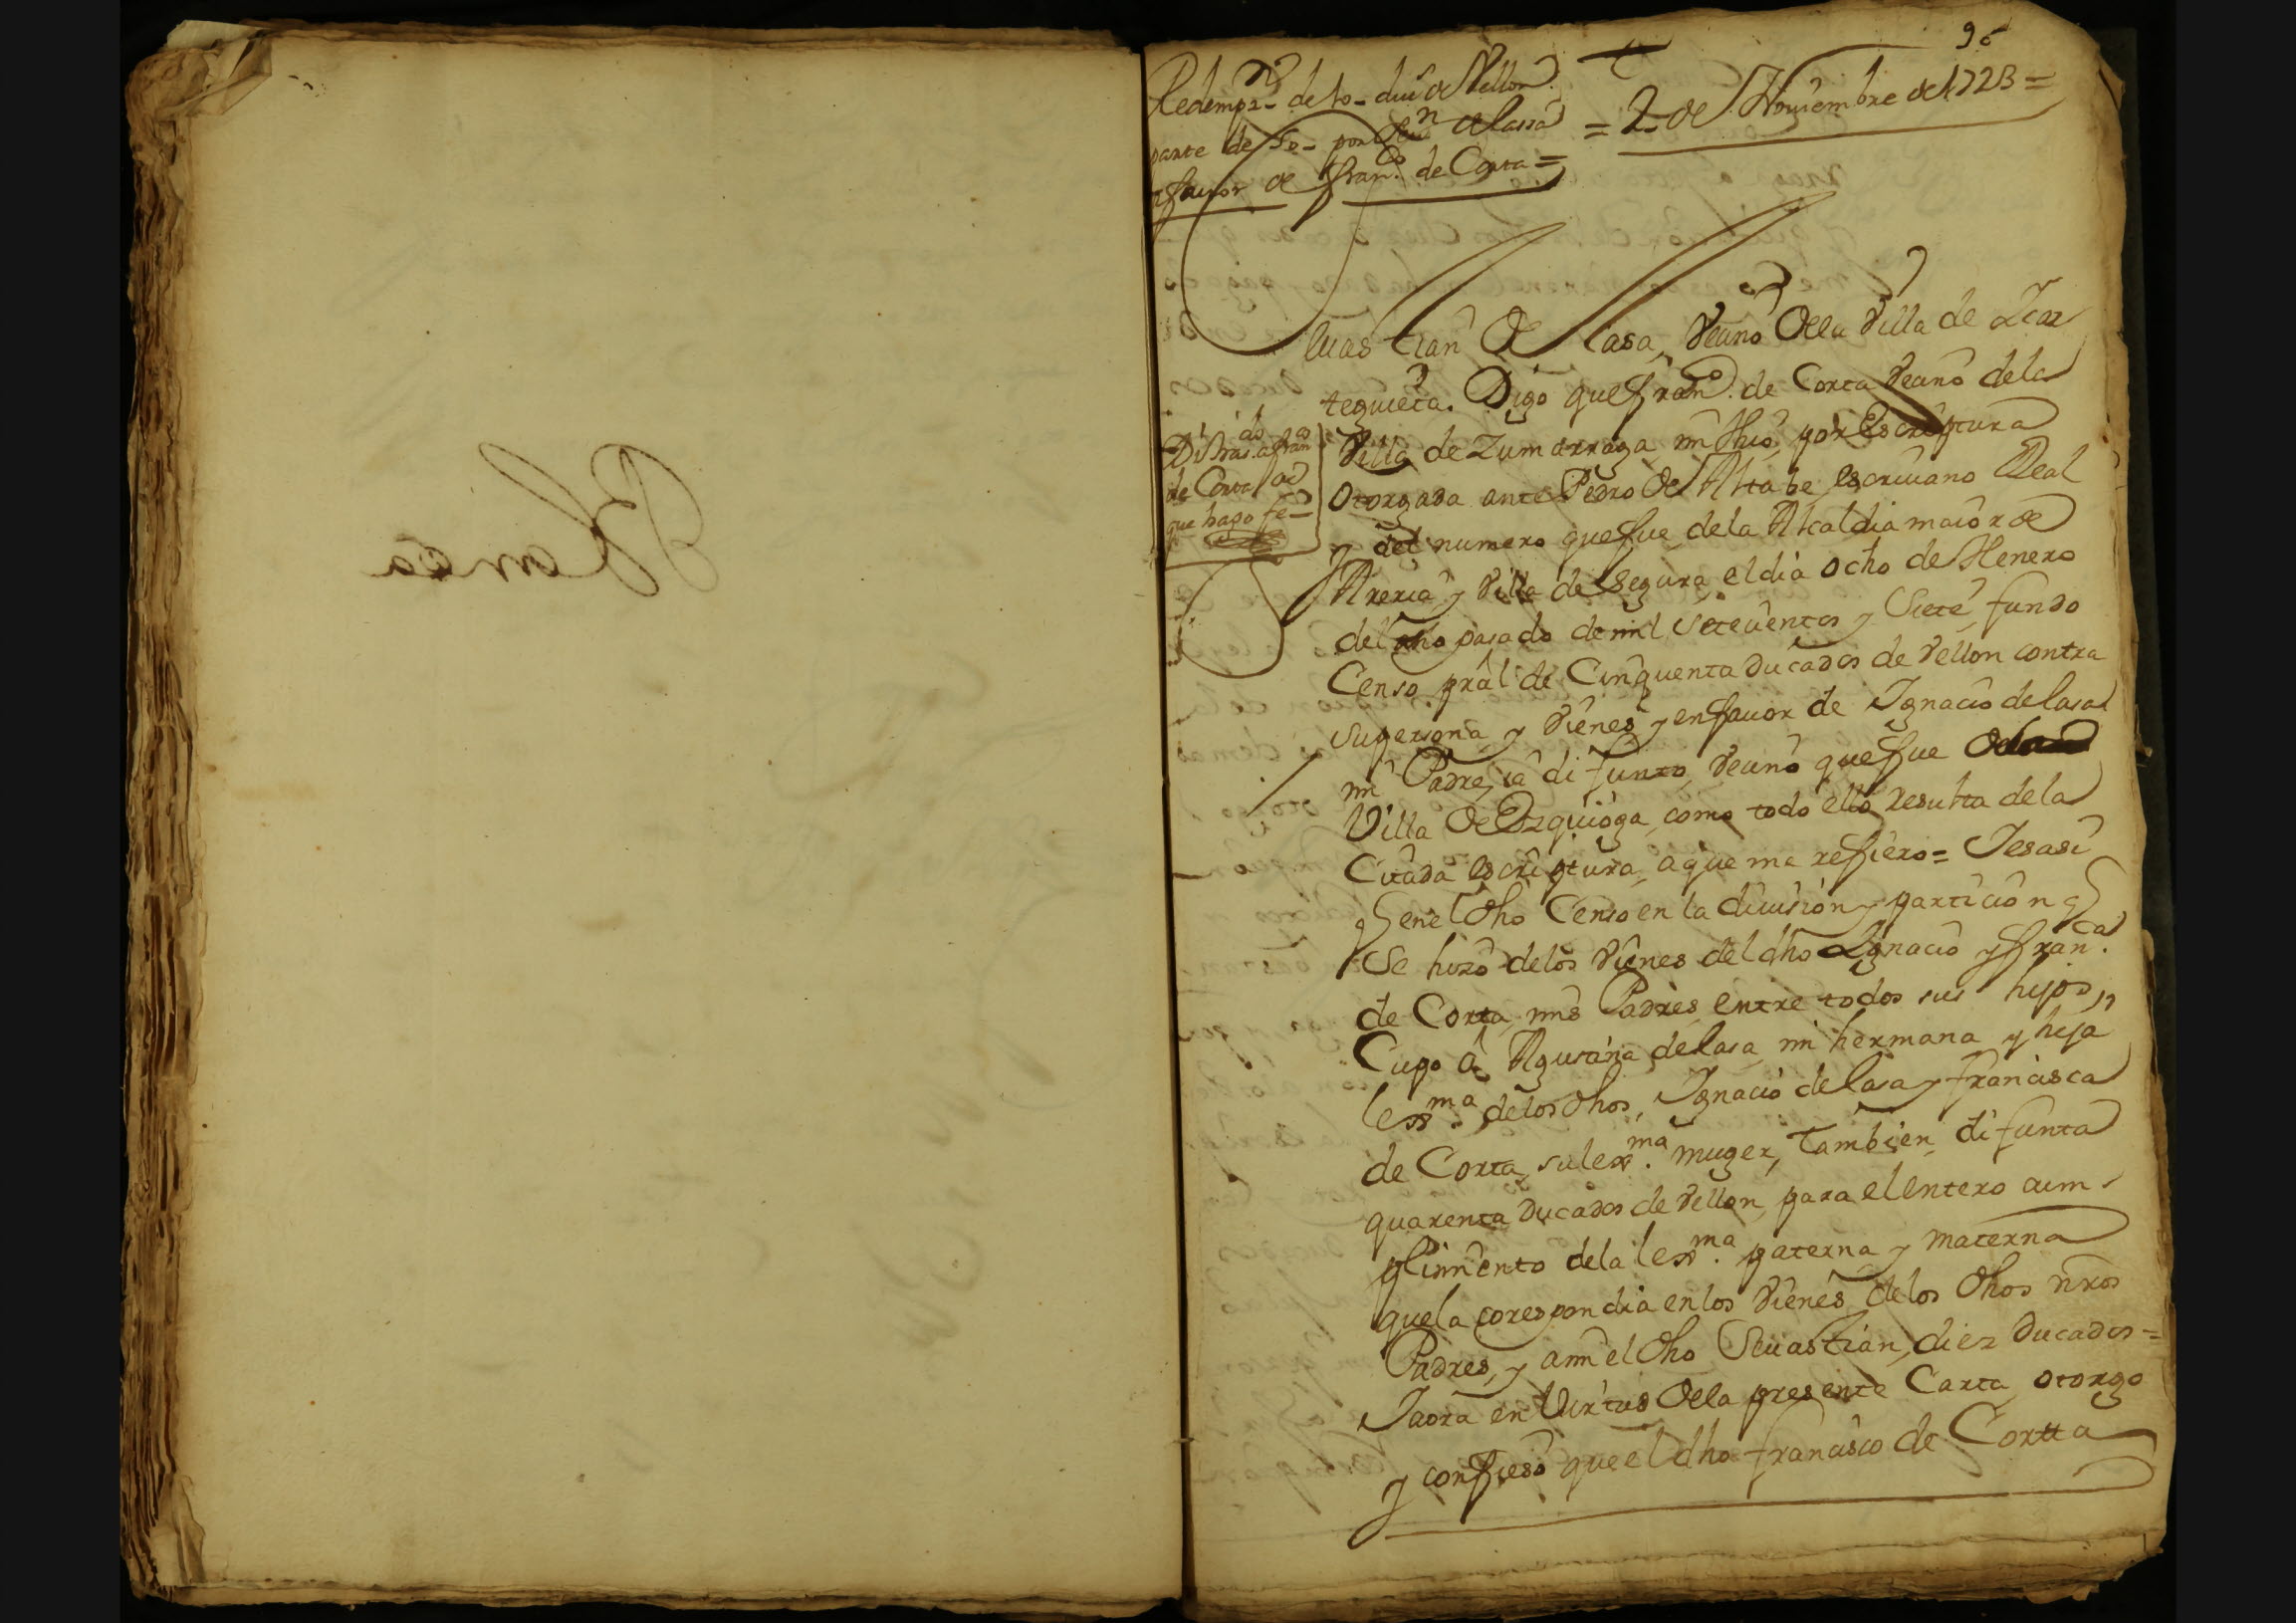 96
Redempz.n de 10_ du.s de Vellon
parte de 50_ por Seu.n de lassa
en fauor de Fran.co de Corta =
= 2_ de Nouiembre de 1723 =
Seuastian de lasa, Veano de la Villa de Ichas
teguieta. Digo que fran.co de Corta Veano dela
Villa de Zumarraga mi thio, por Escriptura
Otorgada ante Pedro de Altabe escriuano Real
y del numero que fue dela Alcaldia maior de
Areria y Villa de Segura el dia ocho de Henero
del año pasado de mil Setecientos y Siete, fundo
Censo pral de Cinquenta Ducados de Vellon contra
su persona y Vienes y en fauor de Ignacio de lasa
mi Padre, ia difunto, Veano que fue de la
Villa de Ezquioga, como todo ello resulta dela
Citada escriptura, a que me refiero = I es asi
q en el dho Censo en la diuision y particion q
Se hizo delos Vienes del dho Ignacio y fran.ca
de Corta, mis Padres, entre todos sus hijos,
Cupo a Agustina de lasa mi hermana y hija
lexma. delos dhos, Ignacio de lasa y francisca
de Corta, su lexma. muger, tambien difunta
quarenta Ducados de Vellon, para el entero cum
plimiento dela lexma. paterna y materna
que la corespondia en los Vienes delos dhos nros
Padres, y a mi el dho Seuastian, diez Ducados =
I aora en Virtud dela presente Carta otorgo
y confieso que el dho francisco de Cortta
Di tras.do a fran.co
de Corta
que hago fe_